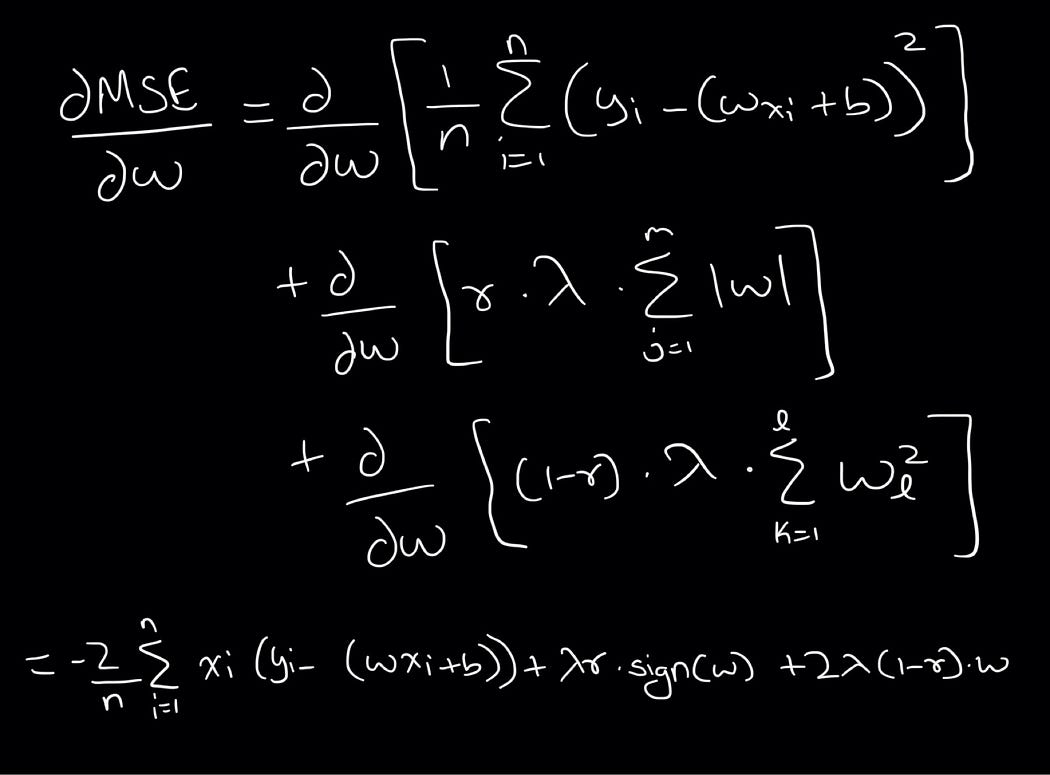 ∂MSE/∂w = ∂/∂w [1/n Σ_{i=1}^{n} (y_i - (wx_i + b))^2]
+ ∂/∂w [r . λ . Σ_{j=1}^{m} |w|]
+ ∂/∂w [(1-r) . λ . Σ_{k=1}^{l} w_l^2]
= -2/n Σ_{i=1}^{n} x_i (y_i - (wx_i+b)) + λr . sign(w) + 2λ(1-r).w